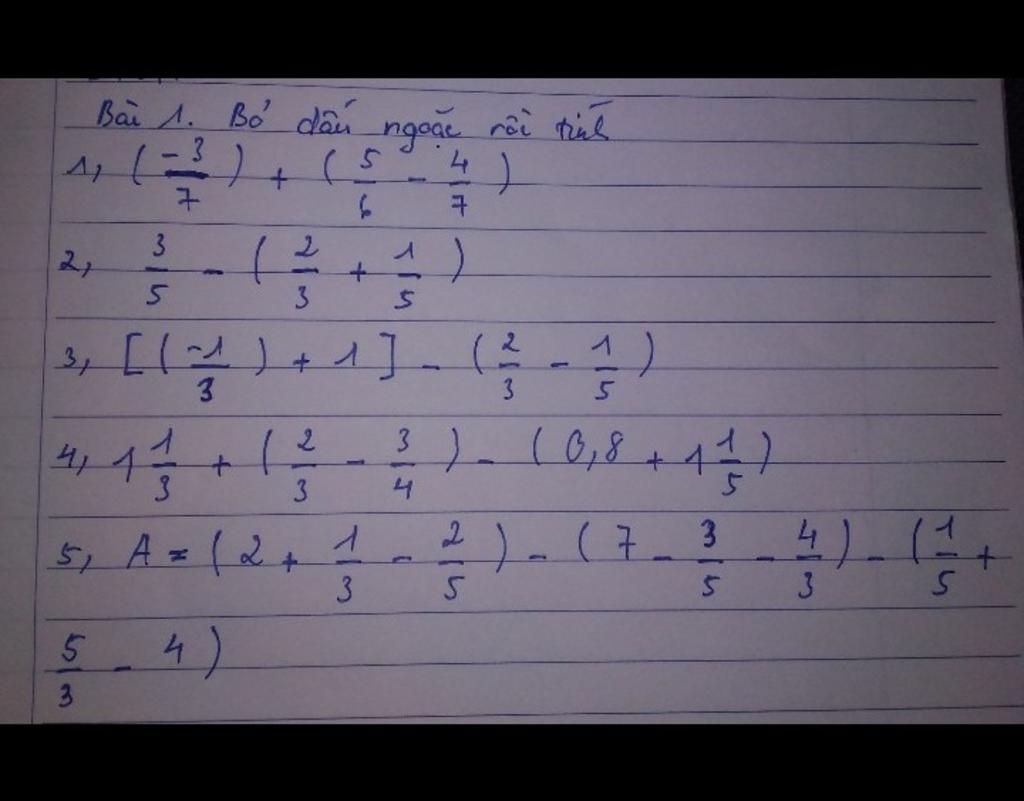 Bài 1. Bỏ dấu ngoặc rồi tính
1, (-3/7) + (5/6 - 4/7)
2, 3/5 - (2/3 + 1/5)
3, [(-1/3) + 1] - (2/3 - 1/5)
4, 1 1/3 + (2/3 - 3/4) - (0,8 + 1 1/5)
5, A = (2 + 1/3 - 2/5) - (7 - 3/5 - 4/3) - (1/5 +
5/3 - 4)